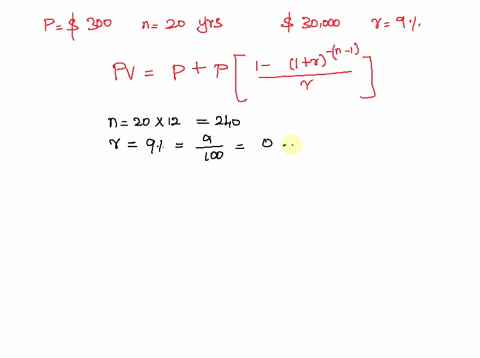 P = $ 300 n = 20 yrs $ 30,000 r = 9%
PV = P + P [ 1 - (1+r)^-(n-1) / r ]
n = 20 × 12 = 240
r = 9% = 9/100 = 0 ..